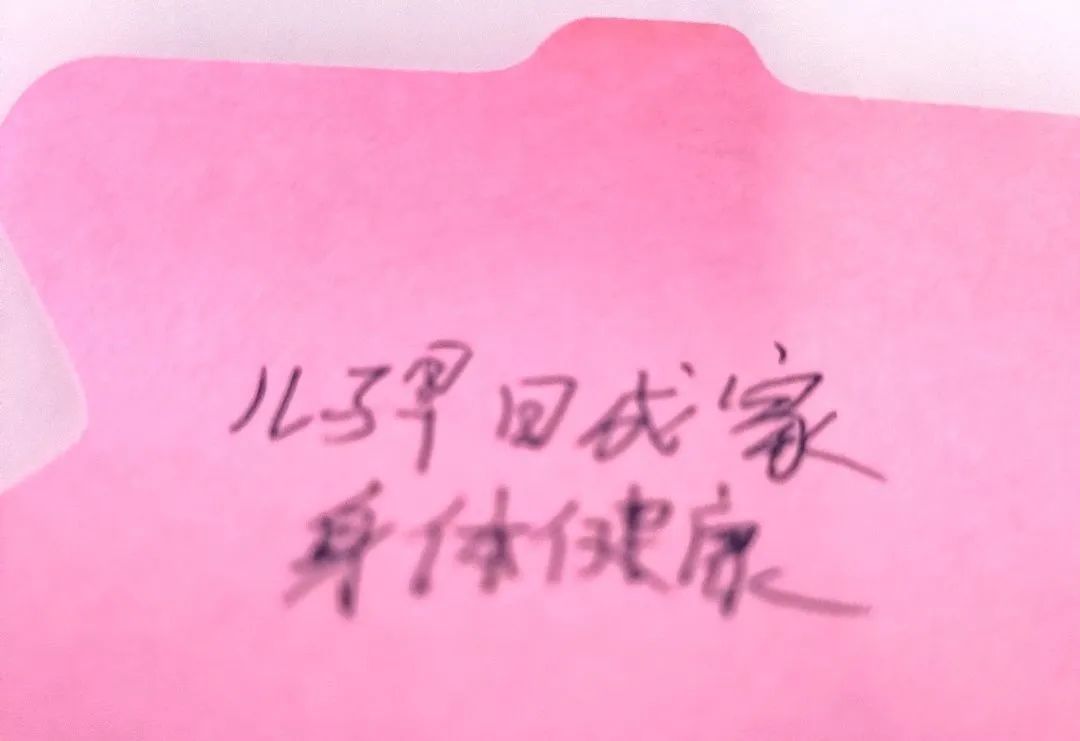 儿子早日成家
身体健康